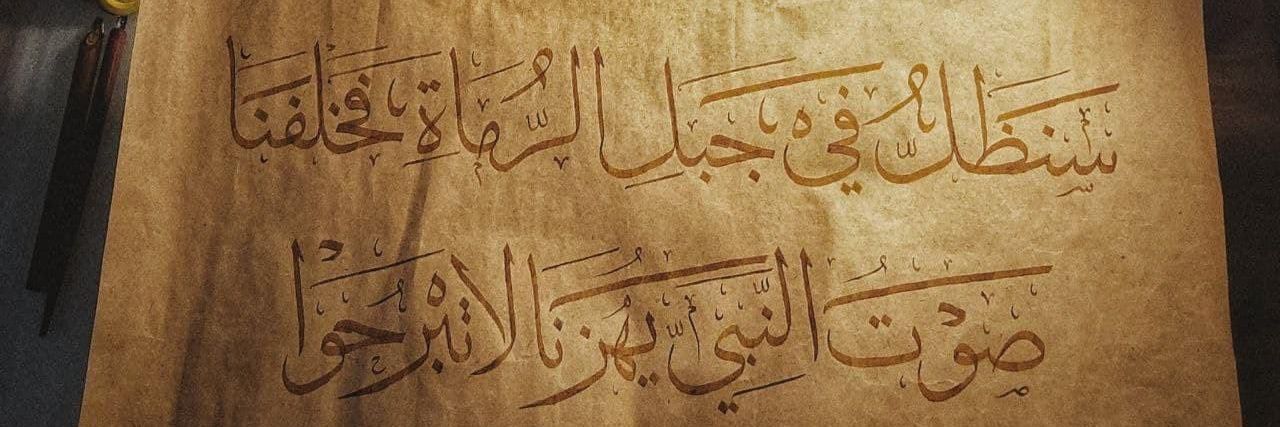 سَنَظَلُّ فِي جَبَلِ الرُّمَاةِ فَخَلْفَنَا
صَوْتُ النَّبِيِّ يَهُزُّنَا لَا تَبْرَحُوْا